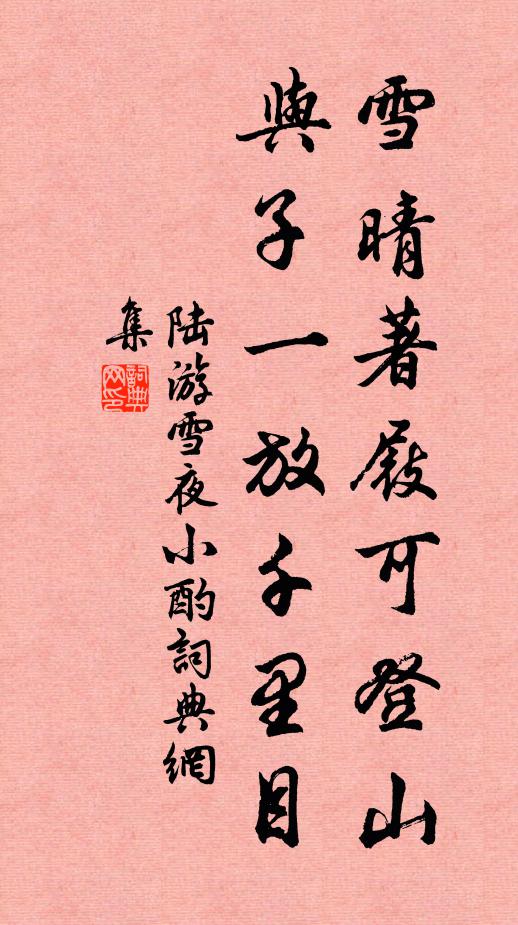 雪晴著屐可登山
與子一放千里目
陸游雪夜小酌詞典網
集
詞典
网印